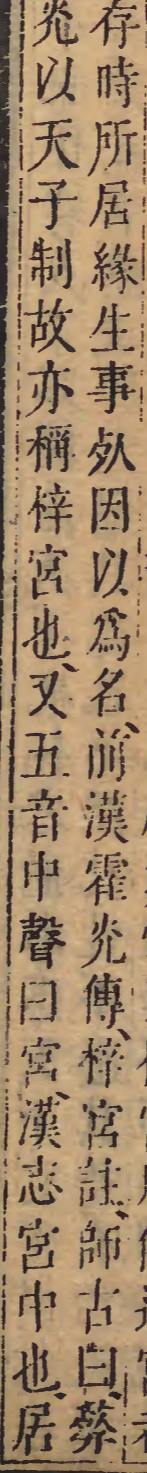 存時所居緣生事死因以爲名前漢霍光傳梓宮註師古曰葬
光以天子制故亦稱梓宮也又五音中聲曰宮漢志宮中也居